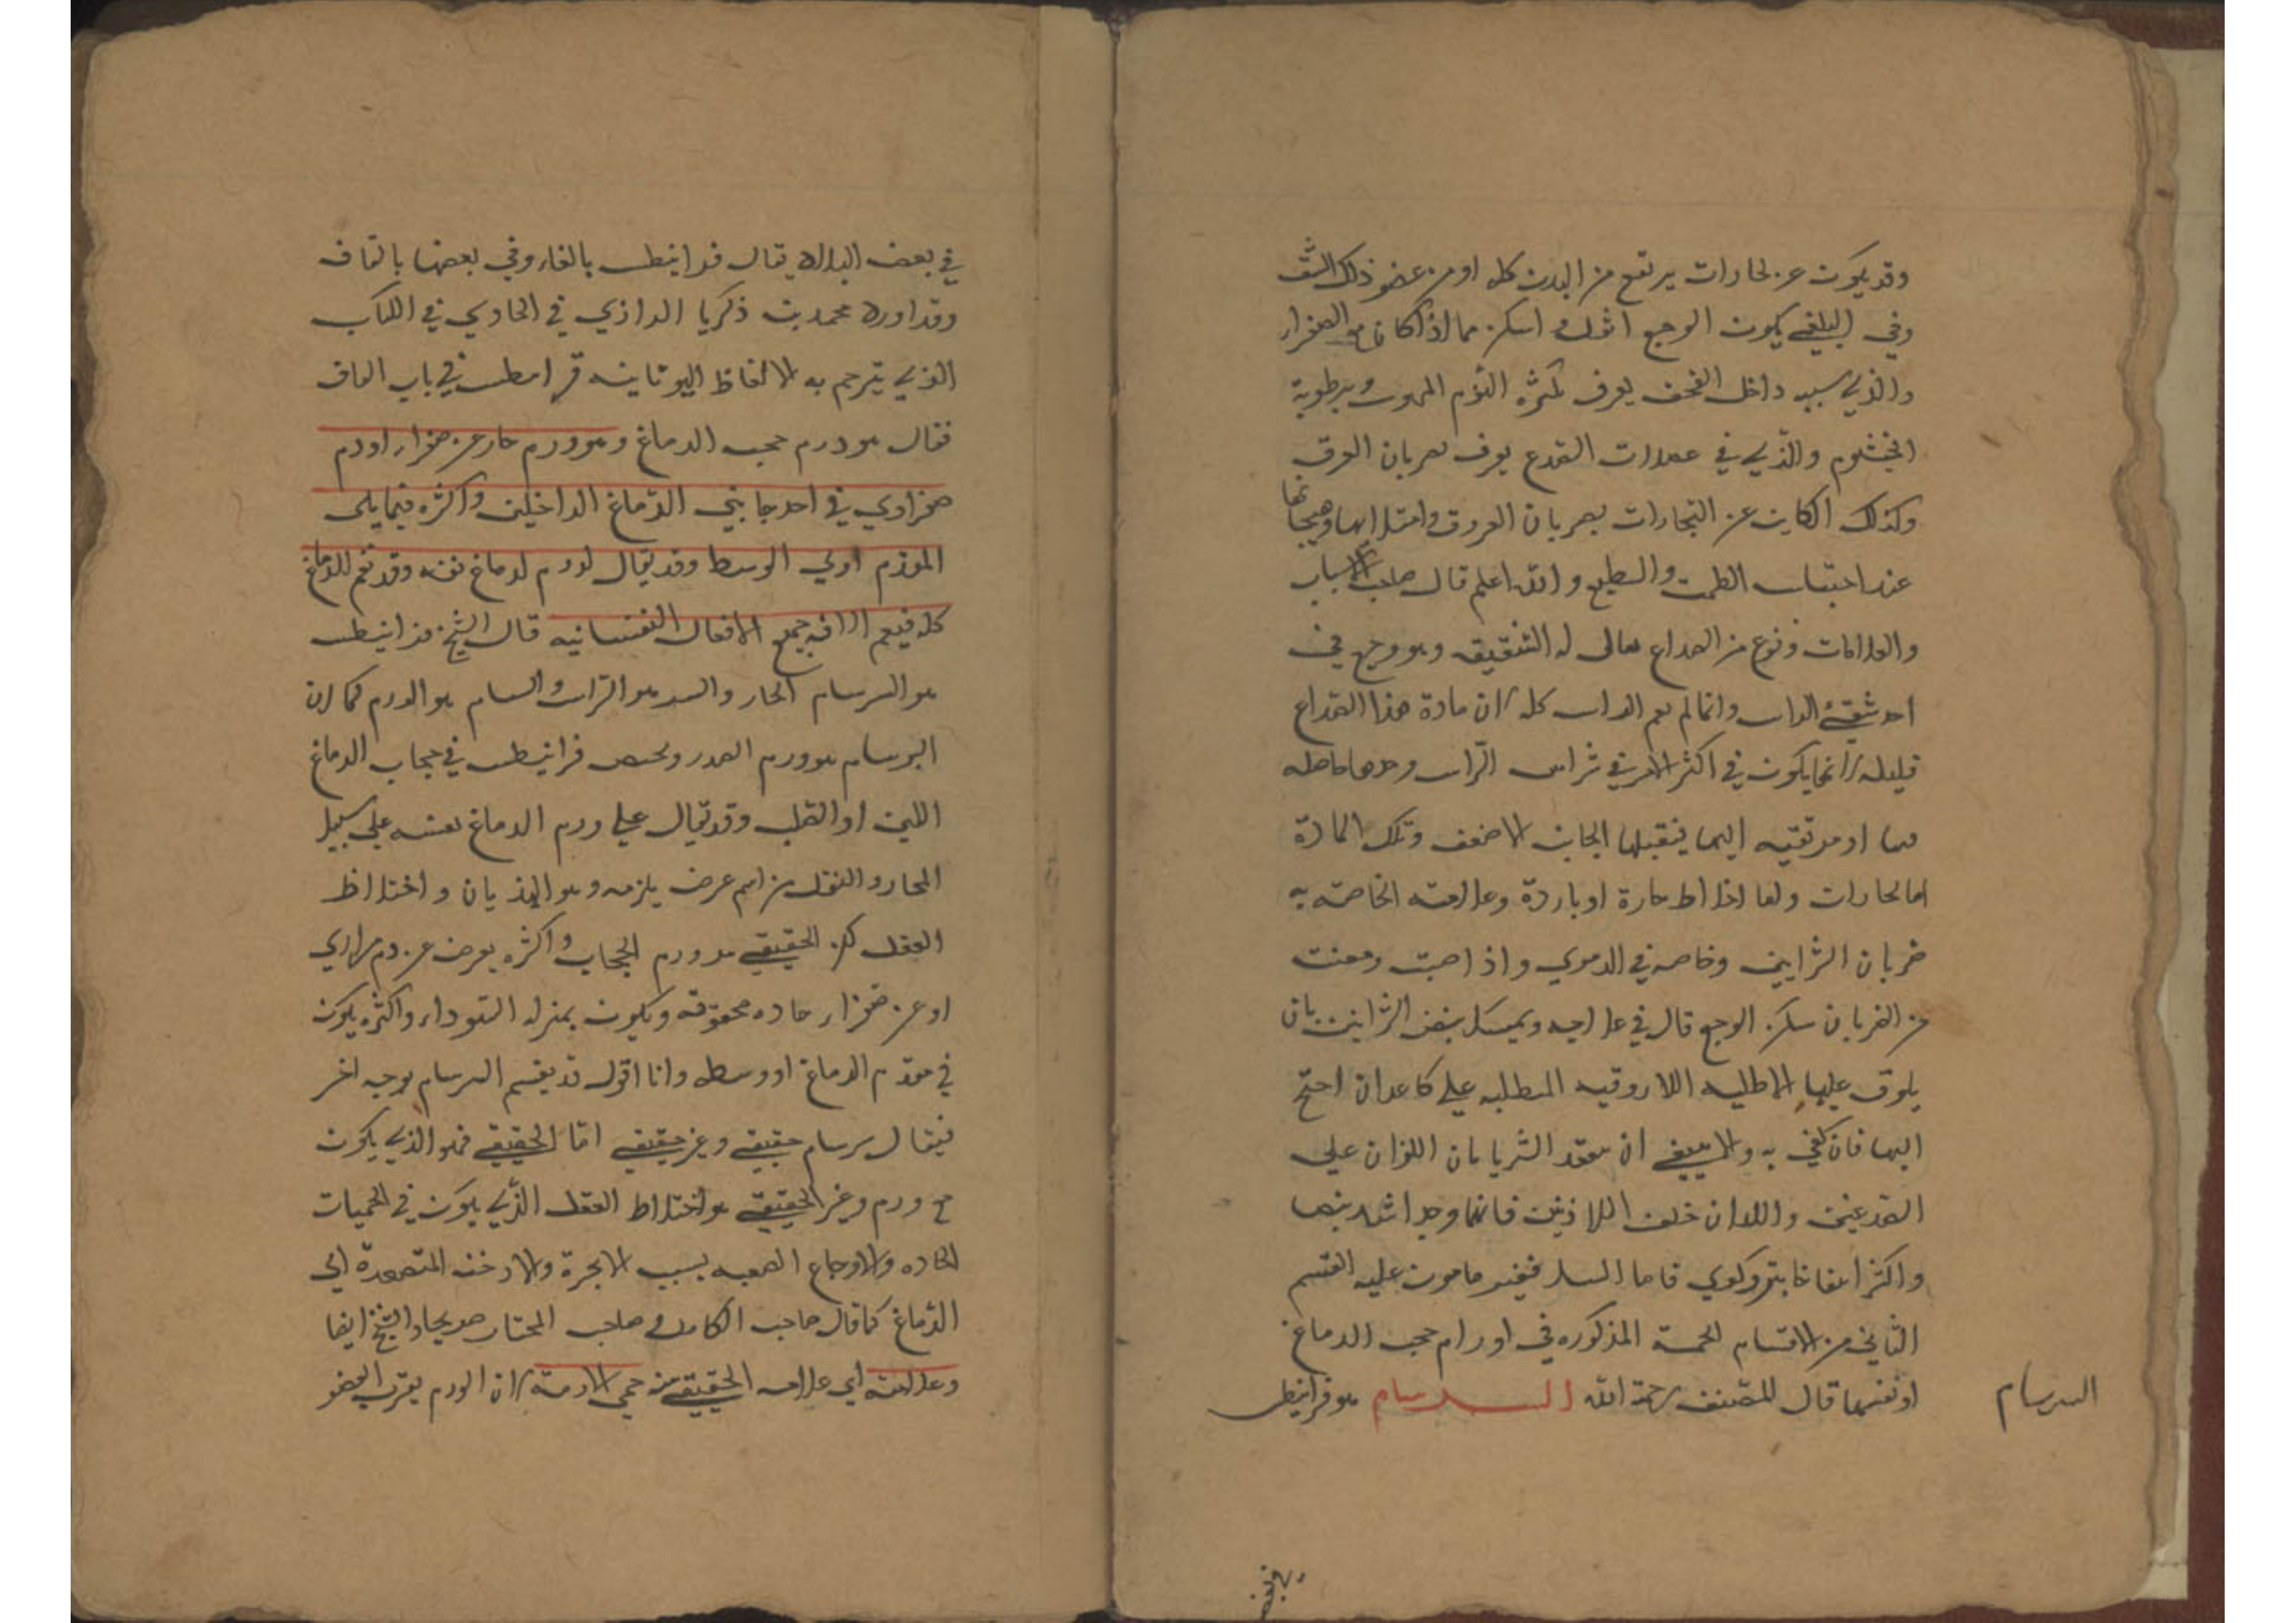 وقد يكون عن بخارات يرتفع من البدن كله او من عضو ذلك الشق
وفي البلغمي يكون الوجع اثقل و اسكن مما اذا كان من الصفراء
والذي سببه داخل القحف يعرف بكثرة النوم المهوت وبرطوبة
الخيشوم والذي في عضلات الصدغ يعرف بضربان العرق
وكذلك الكاين عن البخارات بضربان العروق وامتلائها وهيجانها
عند احتباس الطمث والطبع والله اعلم قال صاحب الاسباب
والعلامات ونوع من الصداع يقال له الشقيقه وهو وجع في
احد شقي الراس وانما لم يعم الراس كله لان مادة هذا الصداع
قليله لانها يكون في اكثر الامر في شراين الراس وحدها حاصله
فيها او مرتقيه اليها فيقبلها الجانب الاضعف وتلك المادة
اما بخارات واما اخلاط حارة او باردة وعلامته الخاصة به
ضربان الشرايين وخاصه في الدموي واذا حبت ومعنت
من الضربان سكن الوجع قال في علاجه ويمسك بنض الشرايين بان
يلزق عليها الاطليه اللازوقيه المطليه علي كاغد ان احتج
اليها فان كفي به والا ينبغي ان يعقد الشريانان اللذان علي
الصدغين واللذان خلف الاذنين فانها وجد اشد نبضا
واكثر انتفاخا بتر وكوي فاما السل ففيه ما مون عليه القسم
الثاني من الاقسام الخمسة المذكوره في اورام حجب الدماغ
او نفسها قال المصنف رحمة الله السرسام هو فرانيطس
السرسام
في بعض
في بعض البلاد يقال فرانيطس بالفاء وفي بعضها بالقاف
وقد اورد محمد بن ذكريا الرازي في الحاوي في الكتاب
الذي يترجم به الالفاظ اليونانيه قرانيطس في باب القاف
فقال هو ورم حجب الدماغ وهو ورم حار عن صفراء او دم
صفراوي في احد جانبي الدماغ الداخلين واكثره فيما يلي
المقدم او في الوسط وقد يقال لورم الدماغ نفسه وقد تعم للدماغ
كله فيعم الافه جميع الافعال النفسانيه قال الشيخ فرانيطس
هو السرسام الحار والسر هو الراس والسام هو الورم كما ان
البرسام هو ورم الصدر ويخص فرانيطس في حجاب الدماغ
اللين او الصلب وقد يقال علي ورم الدماغ نفسه علي سبيل
المجاز والنقل من اسم عرض يلزمه وهو الهذيان واختلاط
العقل لكن الحقيقي هو ورم الحجاب واكثره يعرض عن دم مراري
او عن صفراء حاده محترقه ويكون بمنزله السوداء واكثره يكون
في مقدم الدماغ او وسطه وانا اقول قد يقسم السرسام بوجه اخر
فيقال سرسام حقيقي وغير حقيقي اما الحقيقي فهو الذي يكون
مع ورم وغير الحقيقي هو اختلاط العقل الذي يكون في الحميات
الحاده والاوجاع الصعبه بسبب الابخرة والادخنه المتصعدة الي
الدماغ كما قال صاحب الكامل و صاحب المختار صريحا والشيخ ايضا
وعلامته اي علامه الحقيقي منه حمي لازمة لان الورم بقرب العضو